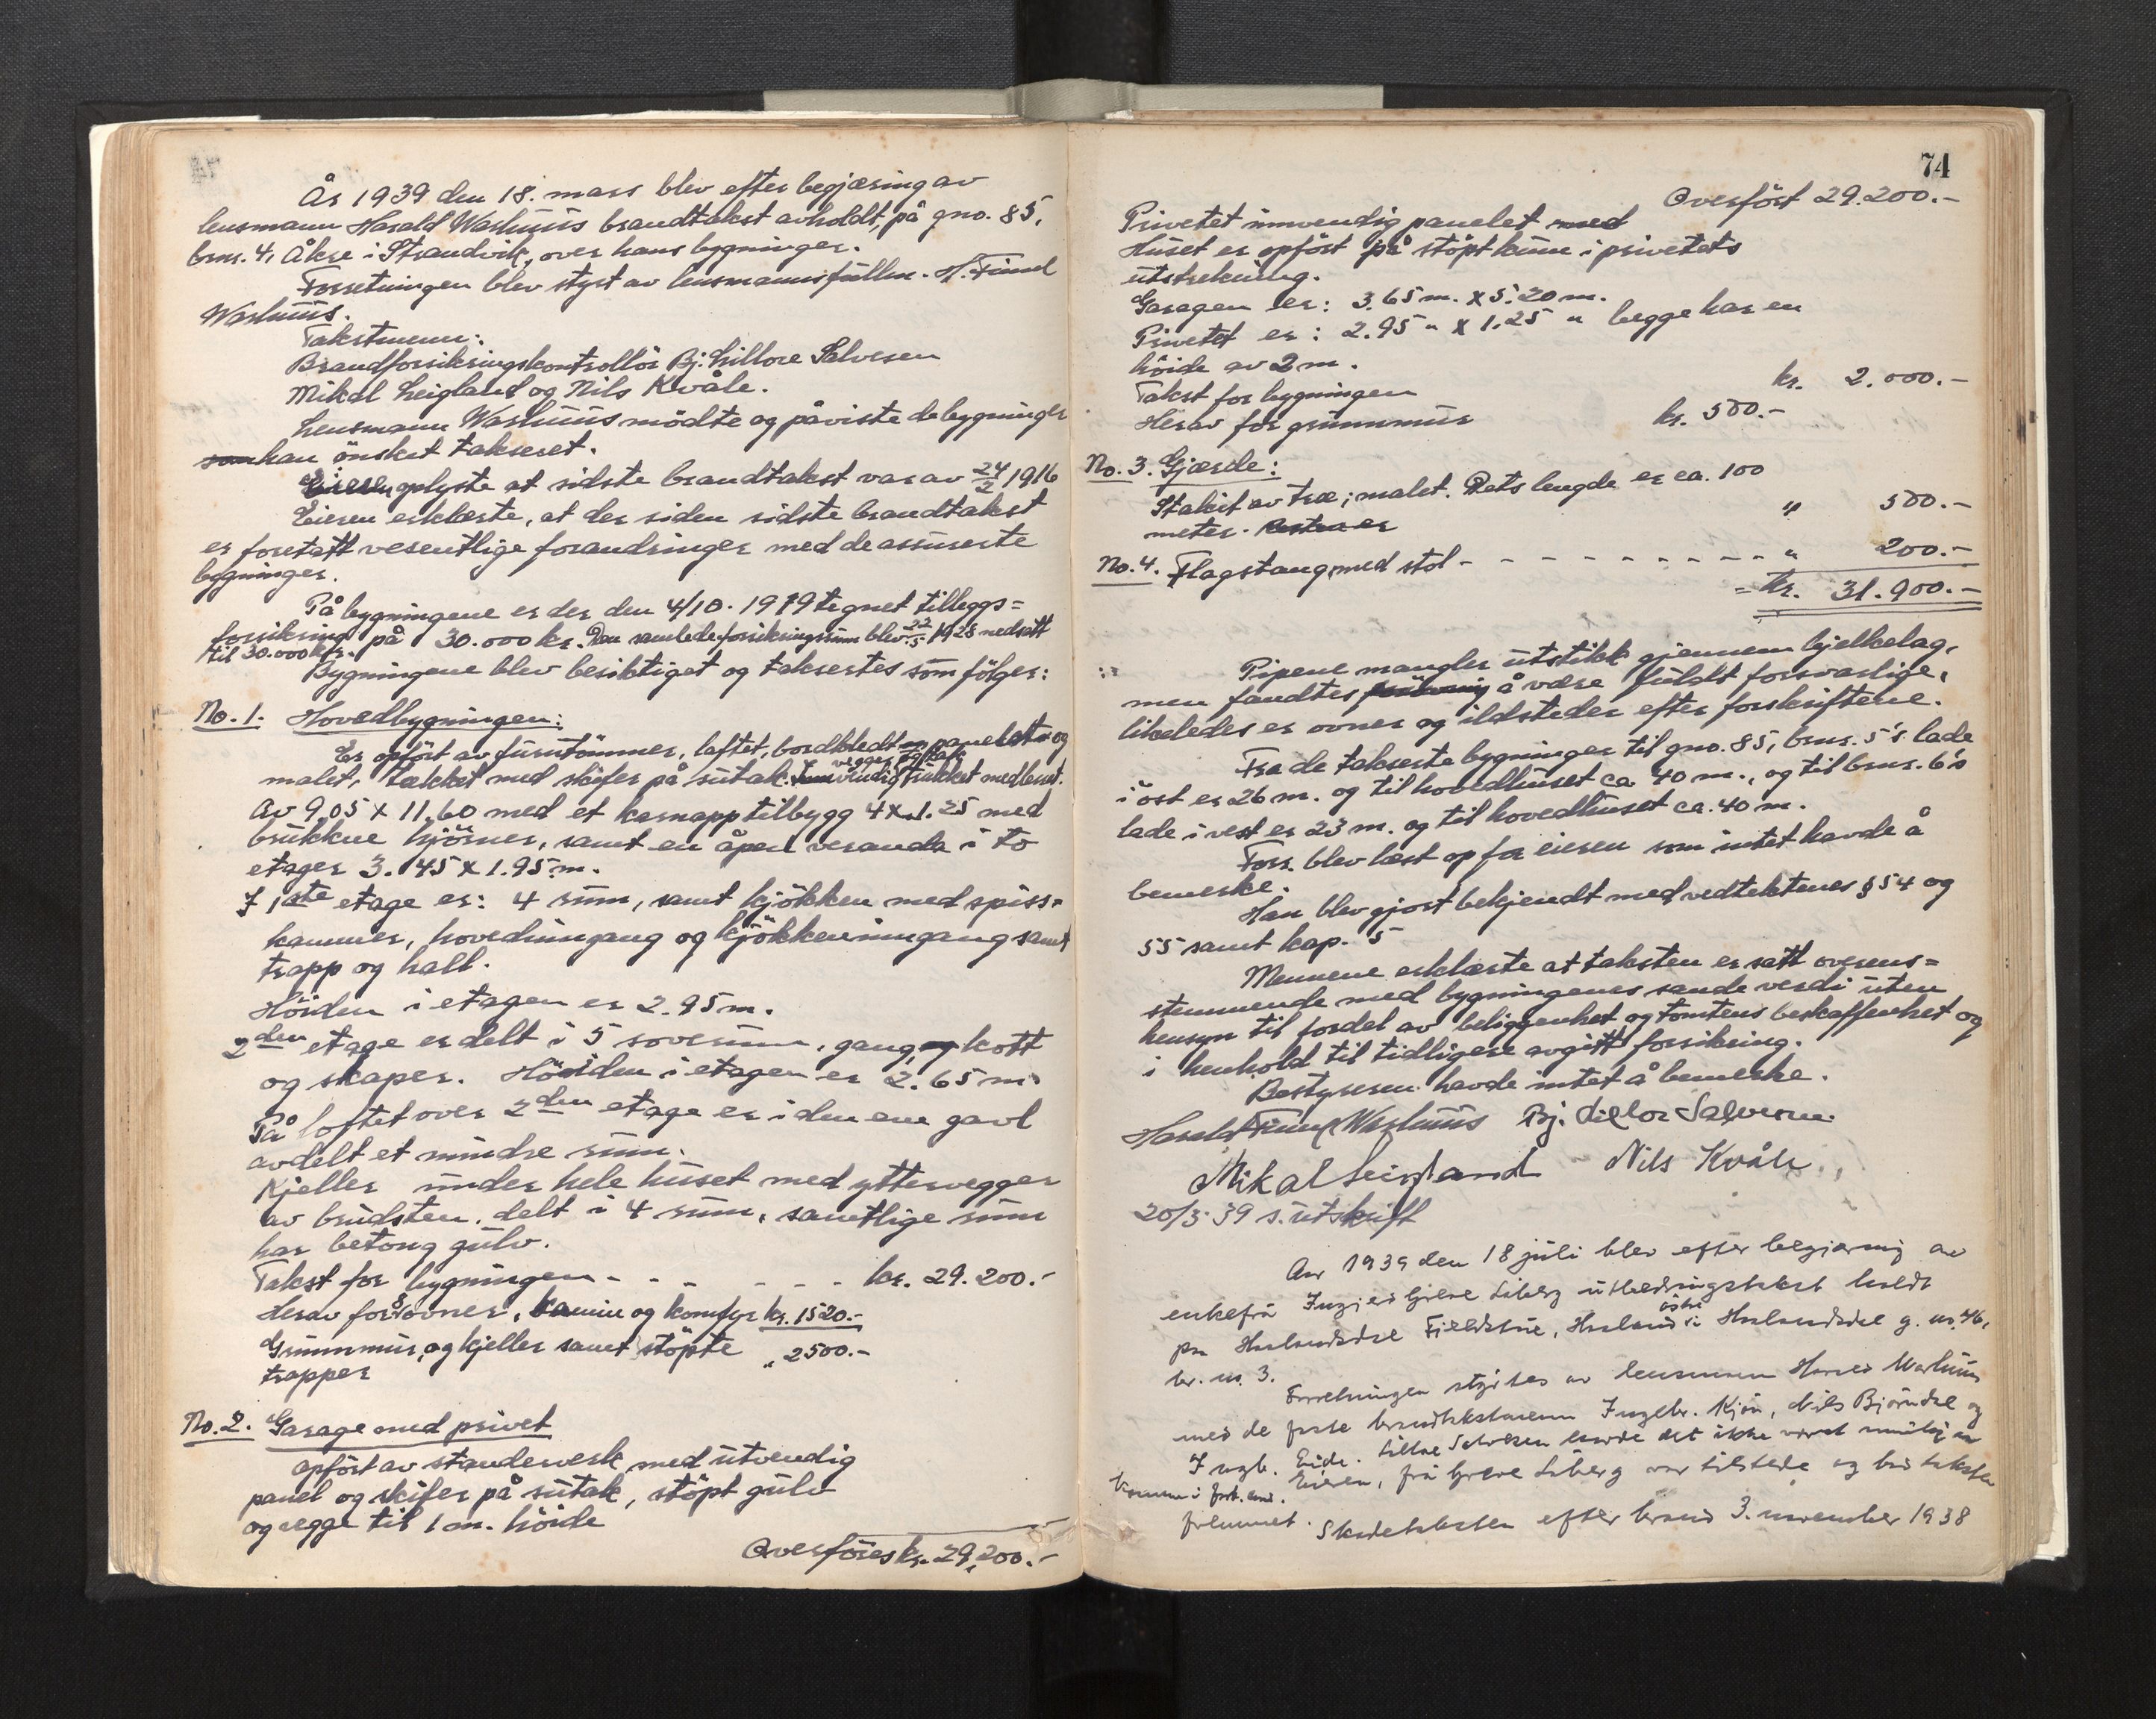 År 1939 den 18. mars blev efter begjæring av
lensmann Harald Warhuus brandtakst avholdt, på gno. 85,
brnr. 4, Åkre i Strandvik, over hans bygninger.
Forretningen blev styrt av lensmannsfullm. H. Fund
Warhuus.
Takstmenn:
Brandforsikringskontrollør Bj. Lillore Salvesen
Mikal Leigland og Nils Kvåle.
Lensmann Warhuus mödte og påviste de bygninger
som han önsket takseret.
Eieren oplyste at sidste brandtakst var av 24/2 1916
Eieren erklærte, at der siden sidste brandtakst
er foretatt vesentlige forandringer med de assurerte
bygninger.
På bygningene er der den 4/10. 1919 tegnet tilleggs=
forsikring på 30.000 kr. Den samlede forsikringssum blev 22/5 1928 nedsatt
til 30.000 kr.
Bygningene blev besiktiget og takserles som fölger:
No. 1. Hovedbygningen:
Er opfört av furutömmer, loftet, bordkledt panelet og
malet, tækket med skifer på sutak. vegger og tak trukket med
Av 9,05 x 11,60 med et karnapptilbygg 4 x 1.25 med
brukkne hjörner, samt en åpen veranda i to
etager 3.45 x 1.95 m.
I 1ste etage er: 4 rum, samt kjökken med spiss=
kammer, hovedinngang og kjökkeninngang samt
trapp og hall.
Höiden i etagen er 2.95 m.
2den etage er delt i 5 soverum, gang, kott
og skaper. Höiden i etagen er 2.65 m.
På loftet over 2den etage er i den ene gavl
avdelt et mindre rum.
Kjeller under hele huset med yttervegger
av brudsten, delt i 4 rum, samtlige rum
har betong gulv.
Takst for bygningen - - - - - - kr. 29.200.-
Herav for 8 ovner, kamin og komfyr kr. 1520.-
Grunnmur, og kjeller samt stöpte " 2500.-
trapper
No. 2. Garage med privet
opfört av standerverk med utvendig
panel og skifer på sutak, stöpt gulv
og vegge til 1 m. höide
Overföres kr. 29,200.-
74
Overfört 29.200.-
Privetet innvendig panelet med
Huset er opfört på stöpt kum i privetets
utstrekning.
Garagen er: 3.65 m. x 5.20 m.
Privetet er: 2.95 " x 1.25 " begge har en
höide av 2 m.
Takst for bygningen kr. 2.000.-
Herav for grunnmur kr. 500.-
No. 3. Gjærde:
Stakit av træ; malet. Dets lengde er ca. 100
meter. " 500.-
No. 4. Flagstang med stol - - - - - - - - - " 200.-
= kr. 31.900.-
Pipene mangler utstikk gjennem bjelkelag,
men fandtes å være fuldt forsvarlige,
likeledes er ovner og ildsteder efter forskriftene.
Fra de takserte bygninger til gno. 85, brnr. 5's lade
i öst er 26 m. og til hovedhuset ca. 40 m., og til brnr. 6's
lade i vest er 23 m. og til hovedhuset ca. 40 m.
Forr. blev læst op for eieren som intet havde å
bemerke.
Han blev gjort bekjendt med vedtektenes § 54 og
55 samt kap. 5
Mennene erklærte at taksten er satt overens=
stemmende med bygningenes sande verdi uten
hensyn til fordel av beliggenhet og tomtens beskaffenhet og
i henhold til tidligere avgitt forsikring.
Bestyreren havde intet å bemerke.
Harald Fund Warhuus Bj. Lillor Salvesen
Mikal Leigland Nils Kvåle
20/3 39 s. utskrift
Aar 1939 den 18 juli blev efter begjæring av
enkefru Ingjerd Greve Liberg utbedringstakst holdt
paa Hålandsdal Fjeldstue, Haaland östre i Hålandsdal g. nr. 46,
br. nr. 3.
Forretningen styrtes av lensmann Harald Warhuus
med de faste brandtakstmenn Ingebr. Kjön, Nils Björndal og
Ingb. Eide. Lillore Salvesen havde det ikke været mulig at
komme i forb. med. Eieren, fru Greve Liberg var tilstede og bad taksten
fremmet. Skadetaksten efter brand 3. november 1938